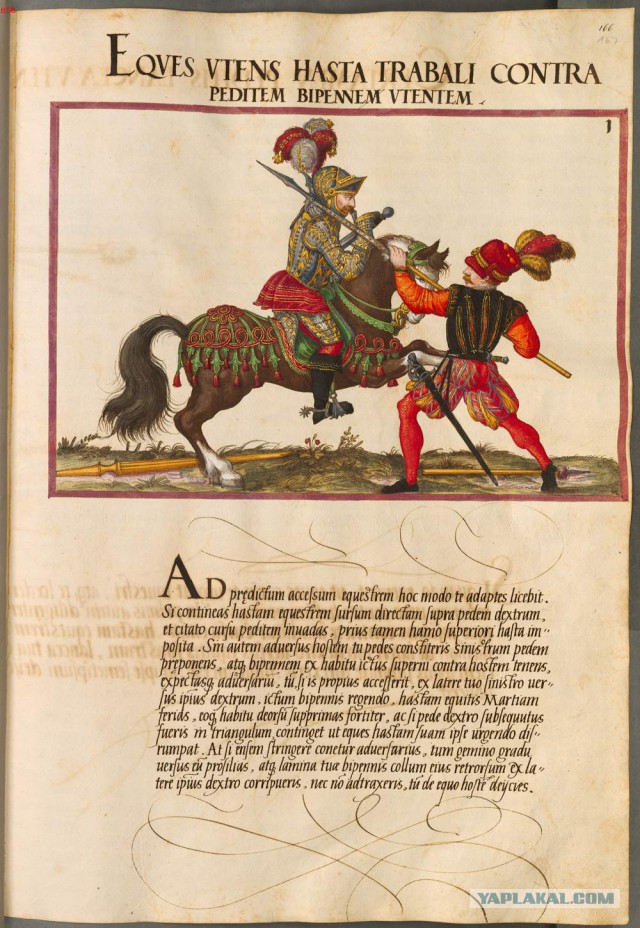 166
EQVES VTENS HASTA TRABALI CONTRA
PEDITEM BIPENNEM VTENTEM.
1
AD prędictum accessum equestrem hoc modo te adaptes licebit.
Si contineas hastam equestrem sursum directam supra pedem dextrum,
et citato cursu peditem inuadas, prius tamen hamo superiori hasta im-
posita. Sin autem aduersus hostem tu pedes constiteris sinistrum pedem
preponens, atq bipennem ex habitu ictus superni contra hostem tenens,
expectasq aduersariū, tū, si is propius accesserit, ex latere tuo sinistro ver-
sus ipsius dextrum, ictum bipennis regendo, hastam equitis Martiam
ferids, eoq habitu deorsū supprimas fortiter, ac si pede dextro subsequutus
fueris in triangulum, continget ut eques hastam suam ipse urgendo dis-
rumpat. At si ensem stringere conetur aduersarius, tum gemino gradu
uersus eū prosilias, atq lamina tua bipennis collum eius retrorsum ex la-
tere ipsius dextro corripueris, nec nō adtraxeris, tū de equo hostē deijcies.
YAPLAKAL.COM